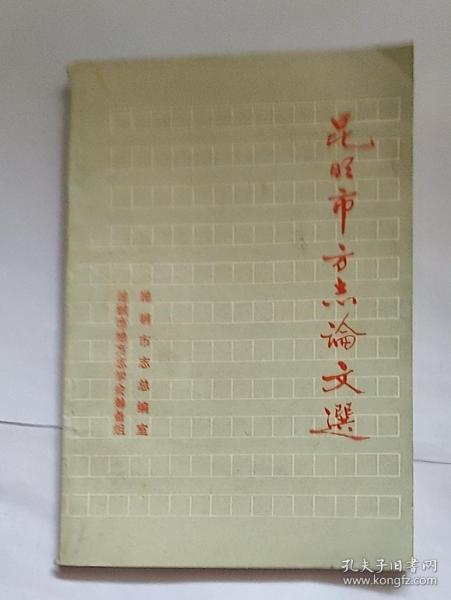 昆明市方志論文選
昆明市志总编室
昆明市地方志学会筹备组
孔夫子旧书网
www.kongfz.com